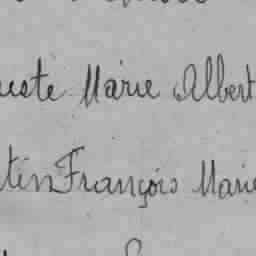 uste Marie Albert
tin François Marie